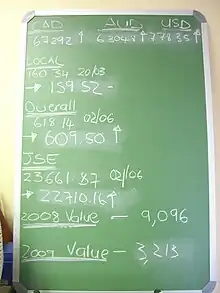 CAD AUD USD
67292 ↑ 6.3048 ↑ 778.35 ↑
LOCAL
160 34 20/03
→ 159.52 -
Overall
618 14 02/06
→ 609.50 ↑
JSE
23661.87 02/06
→ 22710.16 ↑
2008 Value - 9,096
2009 Value - 3,213